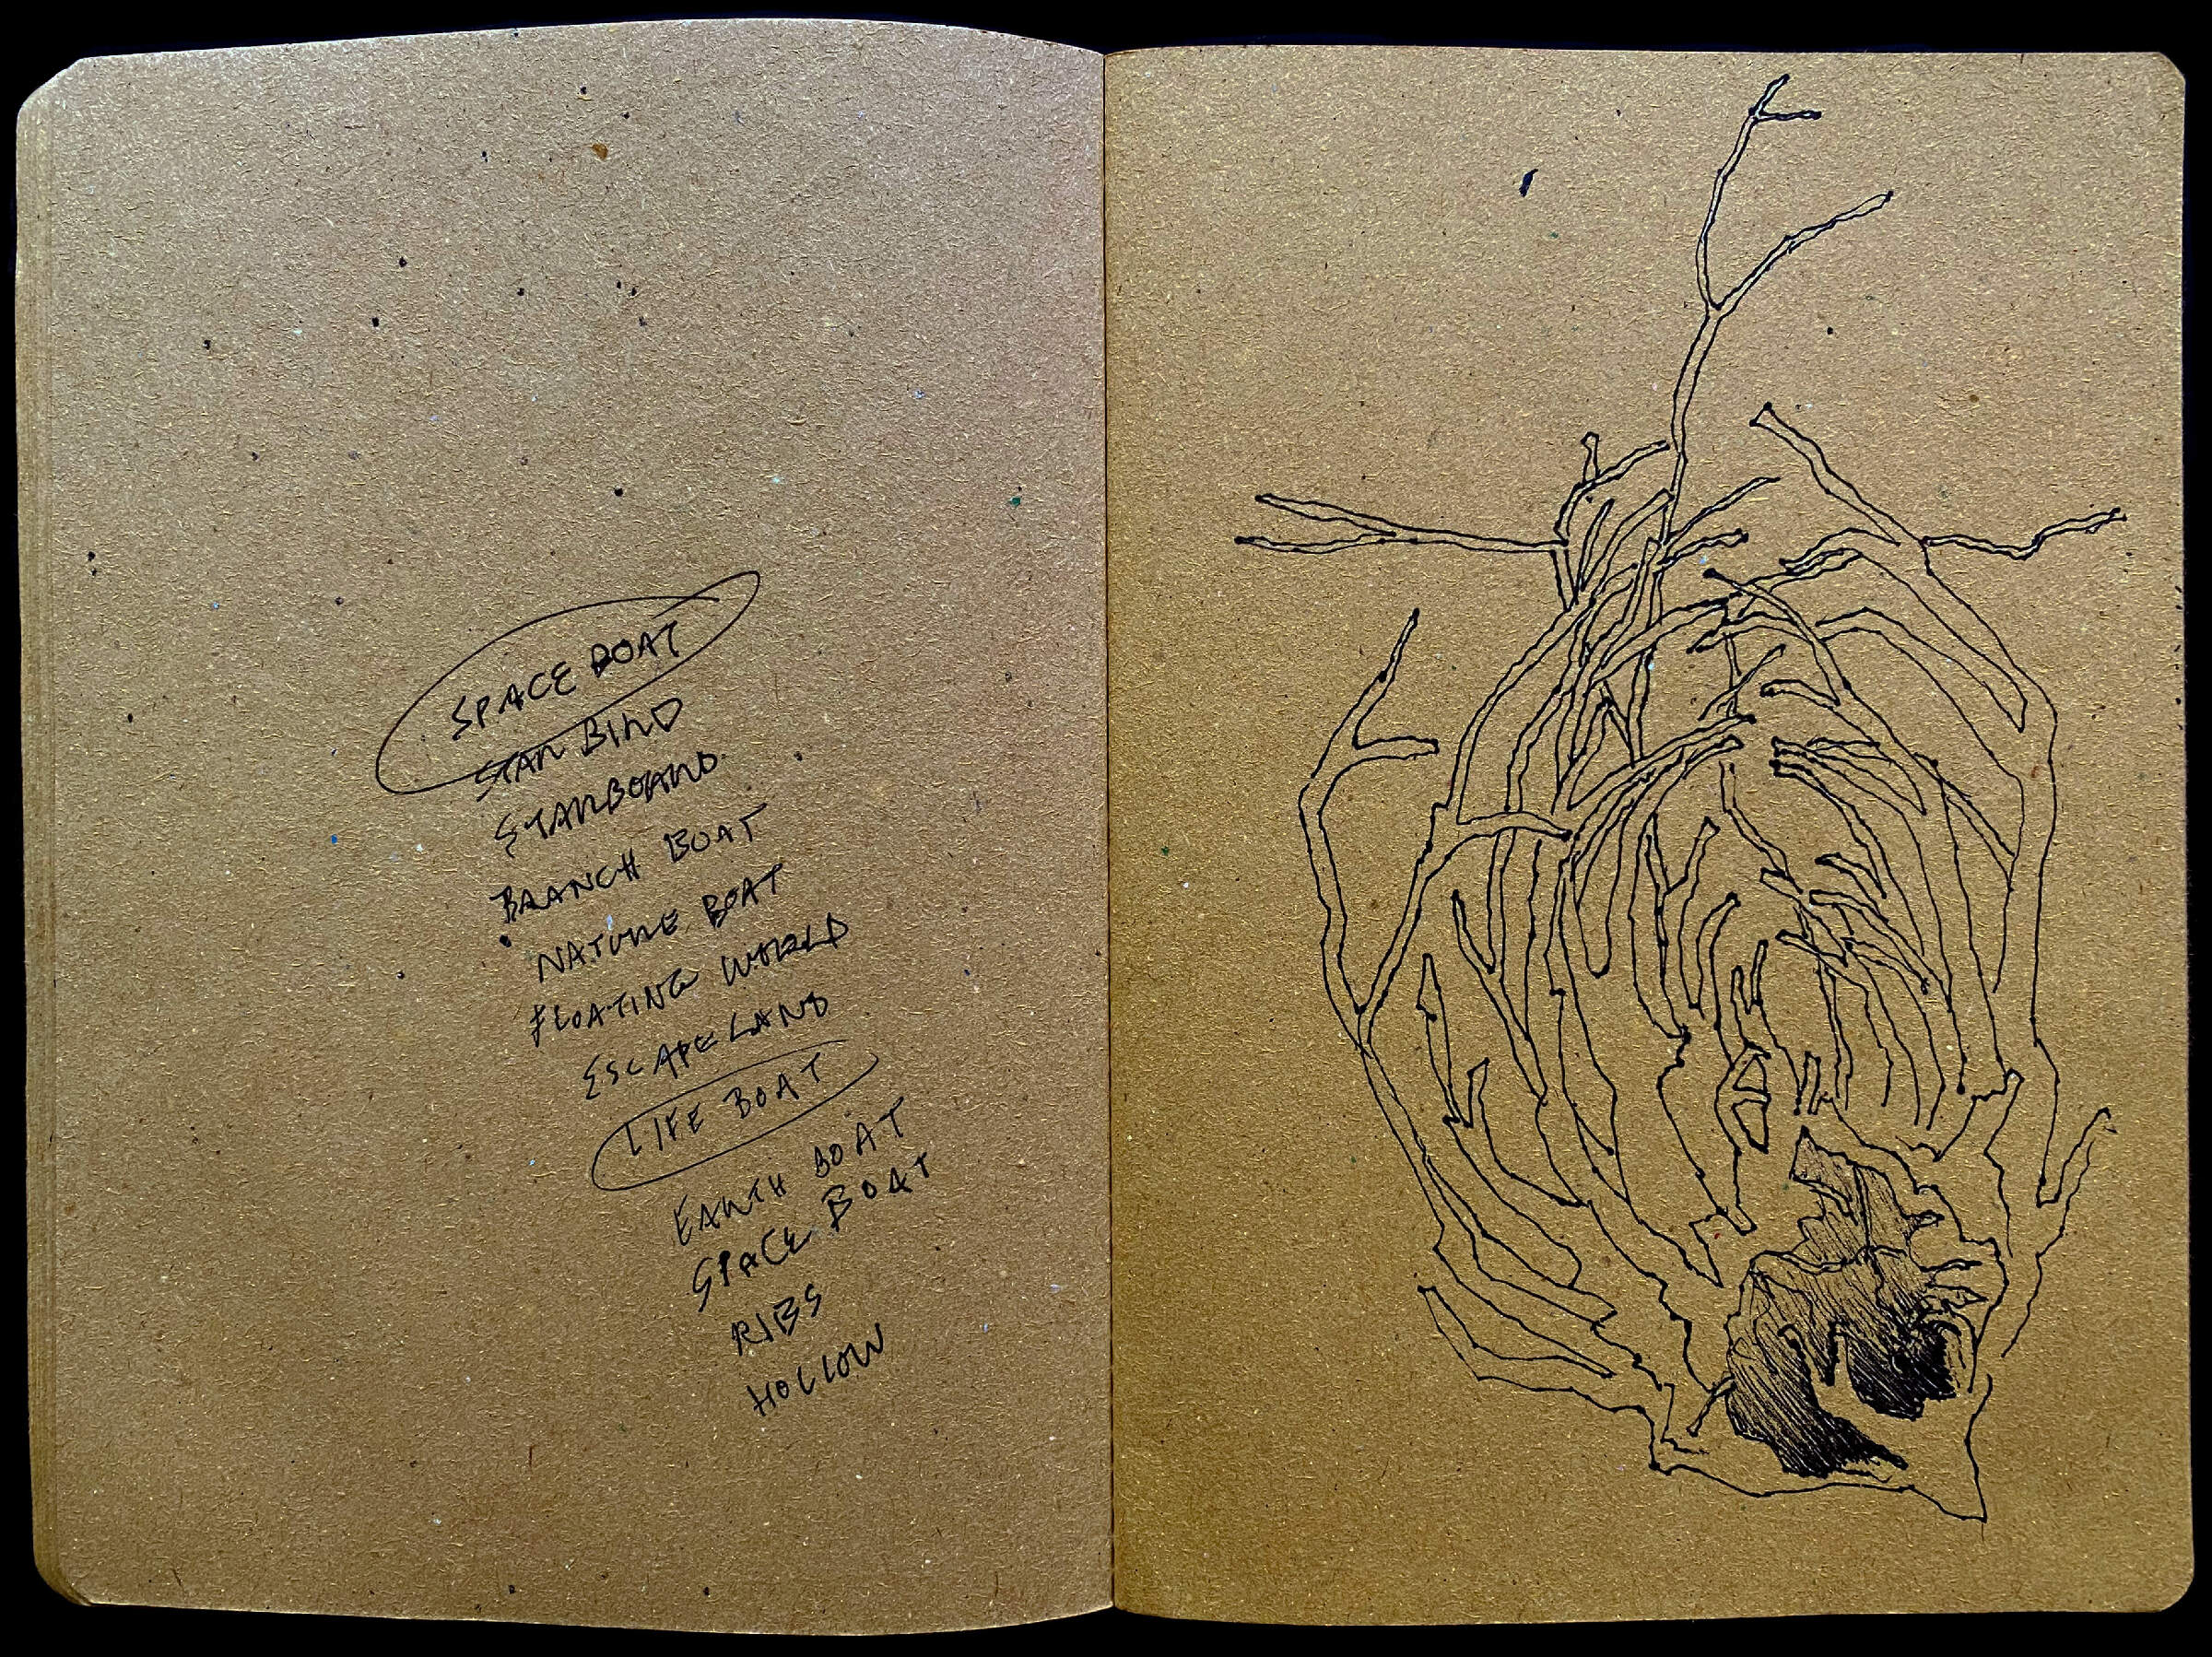 SPACE BOAT
STAR BIRD
STARBOARD
BRANCH BOAT
NATURE BOAT
FLOATING WORLD
ESCAPE LAND
LIFE BOAT
EARTH BOAT
SPACE BOAT
RIBS
HOLLOW